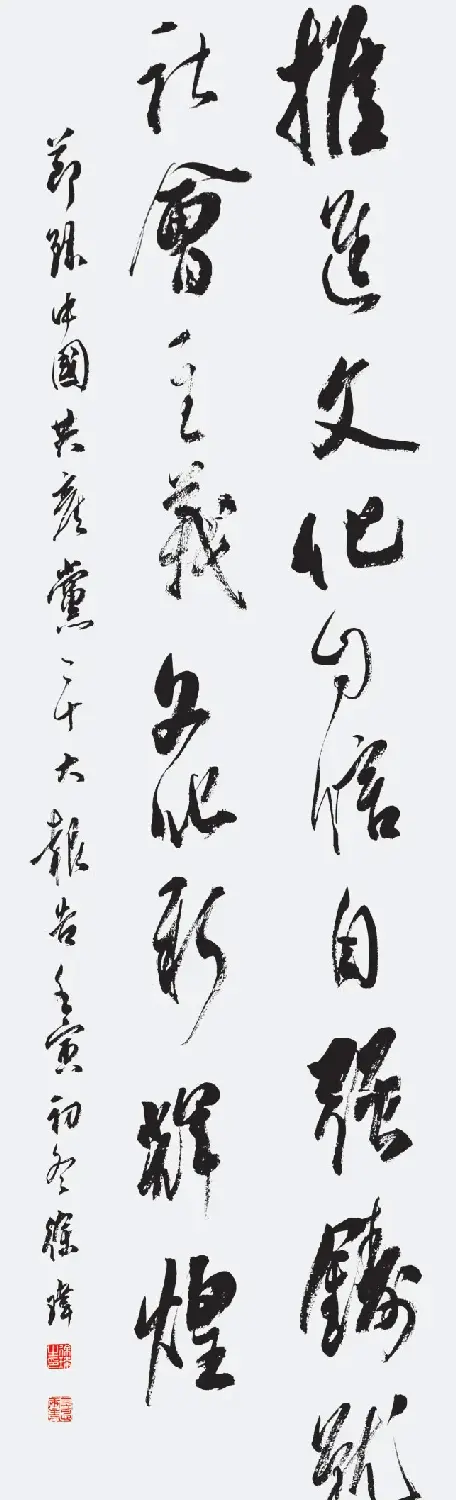 推進文化自信自強鑄就
社會主義文化新輝煌
節録中國共產黨二十大報告壬寅初冬徐瑋